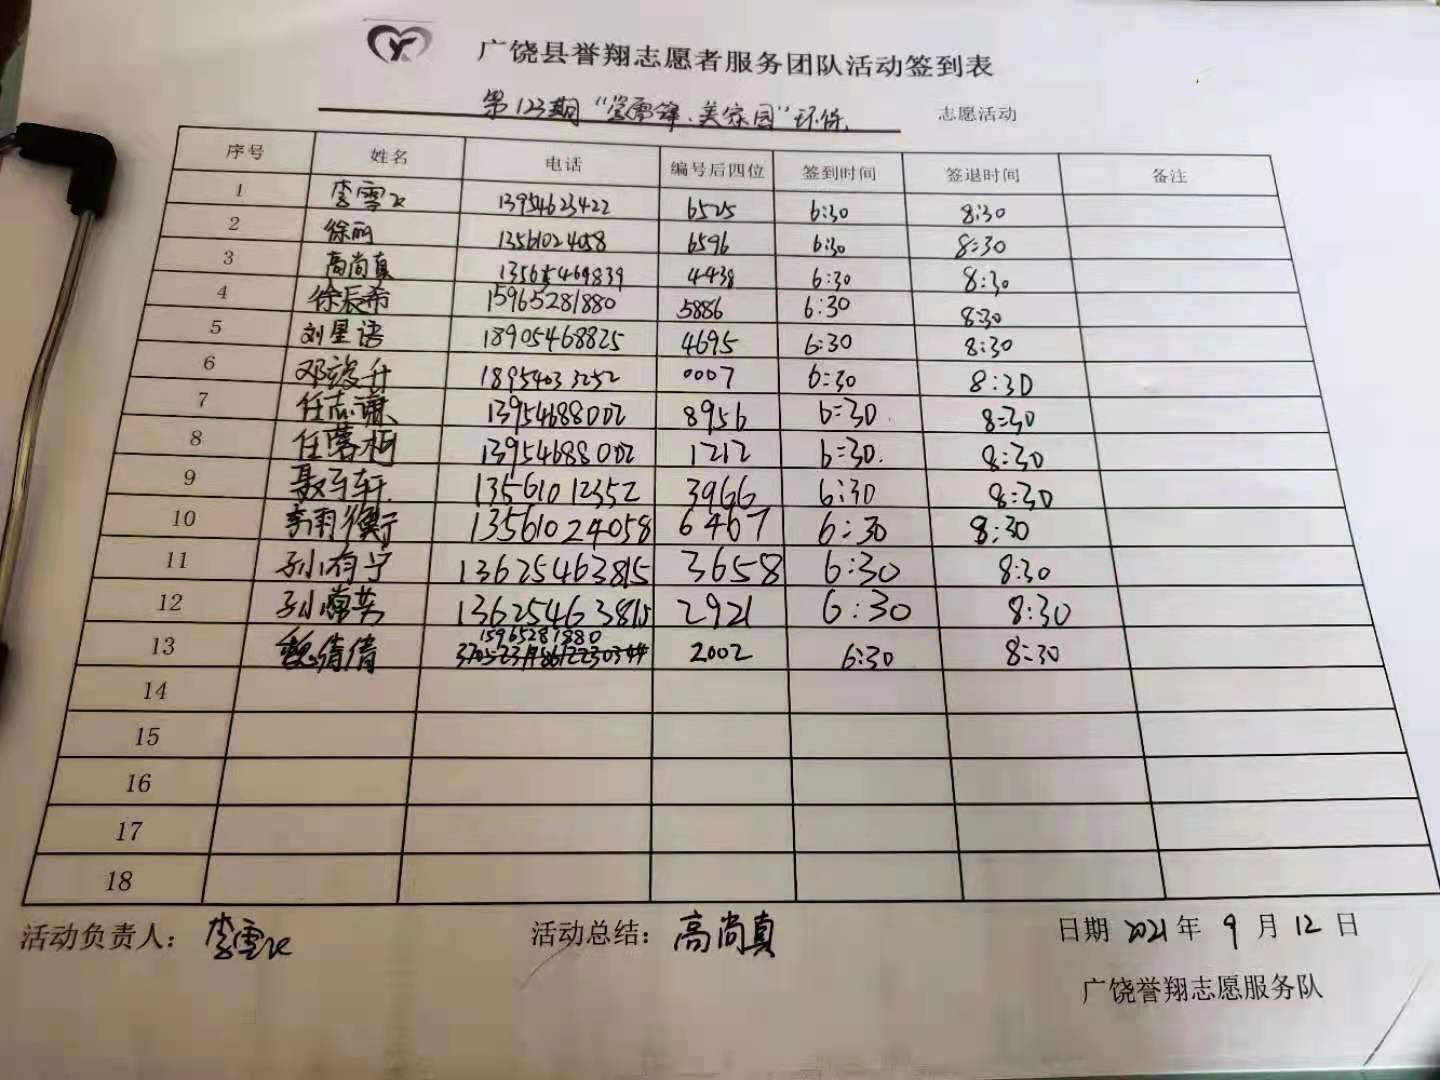 广饶县誉翔志愿者服务团队活动签到表
第123期“学雷锋、美家园”环保 志愿活动
序号 姓名 电话 编号后四位 签到时间 签退时间 备注
1 李雪飞 13954623422 6525 6:30 8:30
2 徐丽 13561024058 6596 6:30 8:30
3 高尚真 13561469839 4438 6:30 8:30
4 徐辰希 15965281880 5886 6:30 8:30
5 刘星语 18905468825 4695 6:30 8:30
6 邓竣升 18954033252 0007 6:30 8:30
7 任志谦 13954688002 8956 6:30 8:30
8 任 13954688002 1212 6:30 8:30
9 聂子轩 13561012352 3966 6:30 8:30
10 李雨衡 13561024058 6467 6:30 8:30
11 孙有宁 13625463815 3658 6:30 8:30
12 孙 英 13625463815 2921 6:30 8:30
13 魏倩倩 15965281880 2002 6:30 8:30
14
15
16
17
18
活动负责人: 李雪飞 活动总结: 高尚真 日期 2021 年 9 月 12 日
广饶誉翔志愿服务队